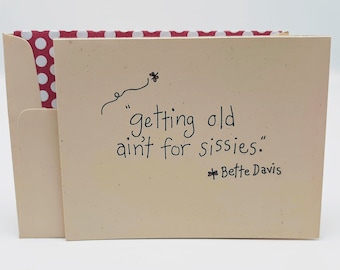 "getting old
ain't for sissies."
Bette Davis